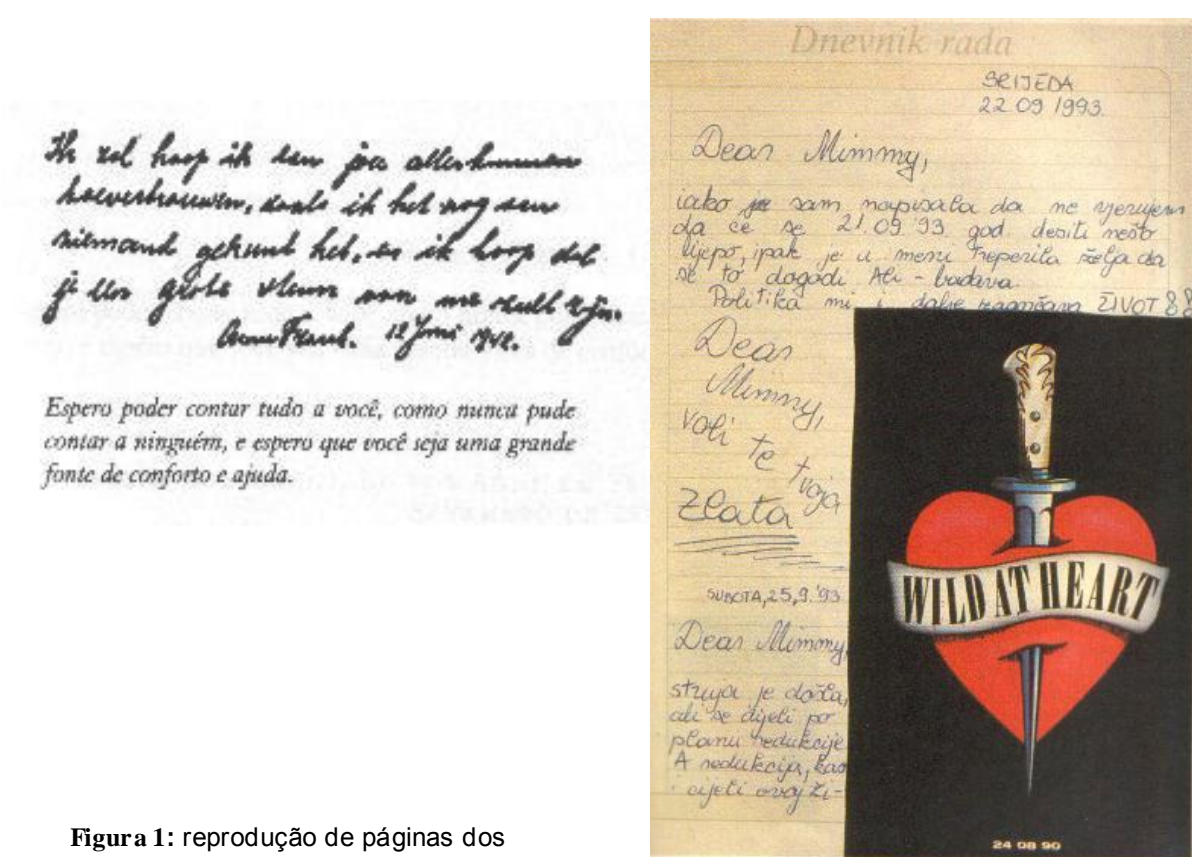 Ik zal hoop ik aan jou alles kunnen
toevertrouwen, zoals ik het nog aan
niemand gekund heb, en ik hoop dat
je een grote steun van me zult zijn.
Anne Frank. 12 Juni 1942.
Espero poder contar tudo a você, como nunca pude
contar a ninguém, e espero que você seja uma grande
fonte de conforto e ajuda.
Figura 1: reprodução de páginas dos
Dnevnik rada
SRIJEDA
22 09 1993.
Dear Mimmy,
iako je sam napisala da ne vjerujem
da će se 21.09.'93. god. desiti nešto
lijepo, ipak je u meni treperila želja da
se to dogodi. Ali - badava.
Politika mi i dalje zagorčava ŽIVOT
Dear
Mimmy,
voli te tvoja
Zlata
SUBOTA, 25.9.'93
Dear Mimmy,
struja je došla,
ali se dijeli po
planu redukcije.
A redukcija, kao
i cijeli ovaj ži-
WILD AT HEART
24 08 90